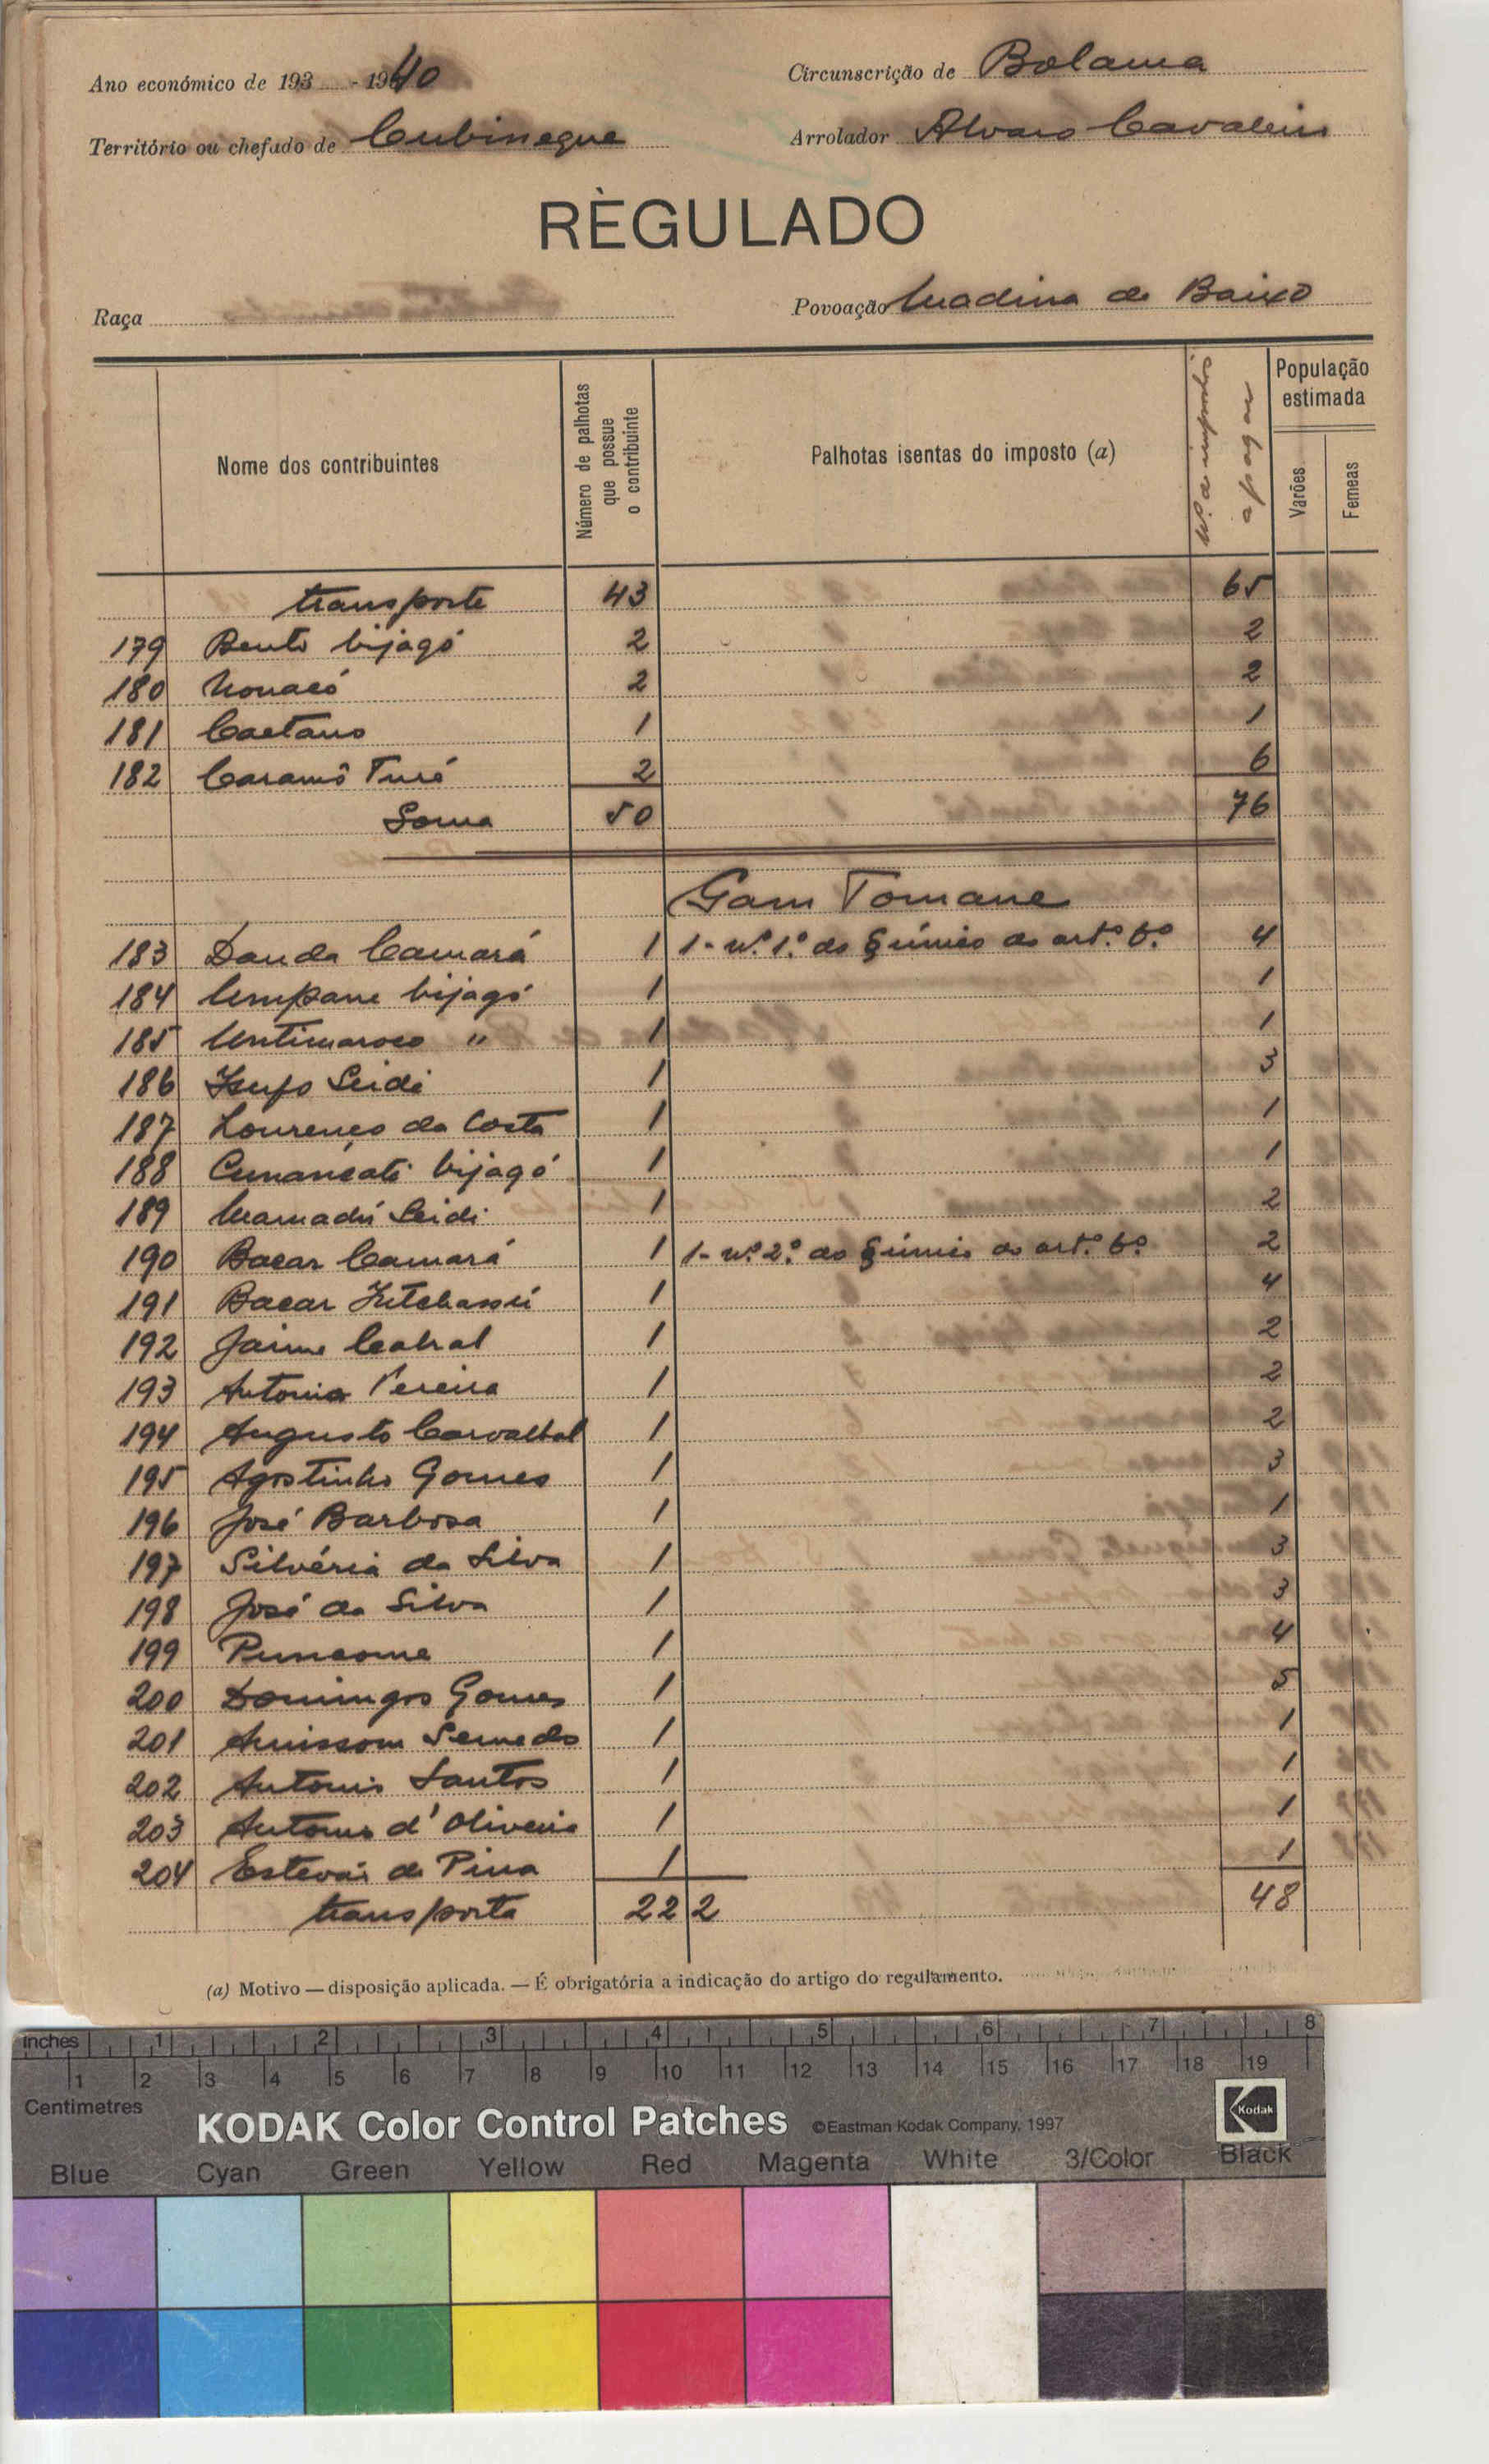 Ano económico de 193 - 1940
Circunscrição de Bolama
Território ou chefado de Cubineque
Arrolador Alvaro Cavaleiro
RÈGULADO
Raça
Povoação Madina de Baixo
Nome dos contribuintes
Número de palhotas que possue o contribuinte
Palhotas isentas do imposto (a)
N.º de impostos a pagar
População estimada
Varões
Femeas
transporte 43 65
179 Bento bijagó 2 2
180 2 2
181 Caetano 1 1
182 Caramô Turé 2 6
Soma 50 76
Gam Tomane
183 Dauda Camará 1 1 - n.º 1.º do § único do art.º 6.º 4
184 Umpane bijagó 1 1
185 " 1 1
186 Isufo Seidi 1 3
187 Lourenço da Costa 1 1
188 bijagó 1 1
189 Mamadú Seidi 1 2
190 Bacar Camará 1 1 - n.º 2.º do § único do art.º 6.º 2
191 Bacar 1 4
192 Jaime Cabral 1 2
193 Antonia Pereira 1 2
194 Augusto Carvalhal 1 2
195 Agostinho Gomes 1 3
196 José Barbosa 1 1
197 Silvéria da Silva 1 3
198 José da Silva 1 3
199 Puncome 1 4
200 Domingos Gomes 1 5
201 Semedo 1 1
202 Antonio Santos 1 1
203 Antonio d'Oliveira 1 1
204 Estevão de Pina 1 1
transporte 22 2 48
(a) Motivo — disposição aplicada. — É obrigatória a indicação do artigo do regulamento.
inches 1 2 3 4 5 6 7 8
1 2 3 4 5 6 7 8 9 10 11 12 13 14 15 16 17 18 19
Centimetres
KODAK Color Control Patches ©Eastman Kodak Company, 1997 Kodak
Blue Cyan Green Yellow Red Magenta White 3/Color Black